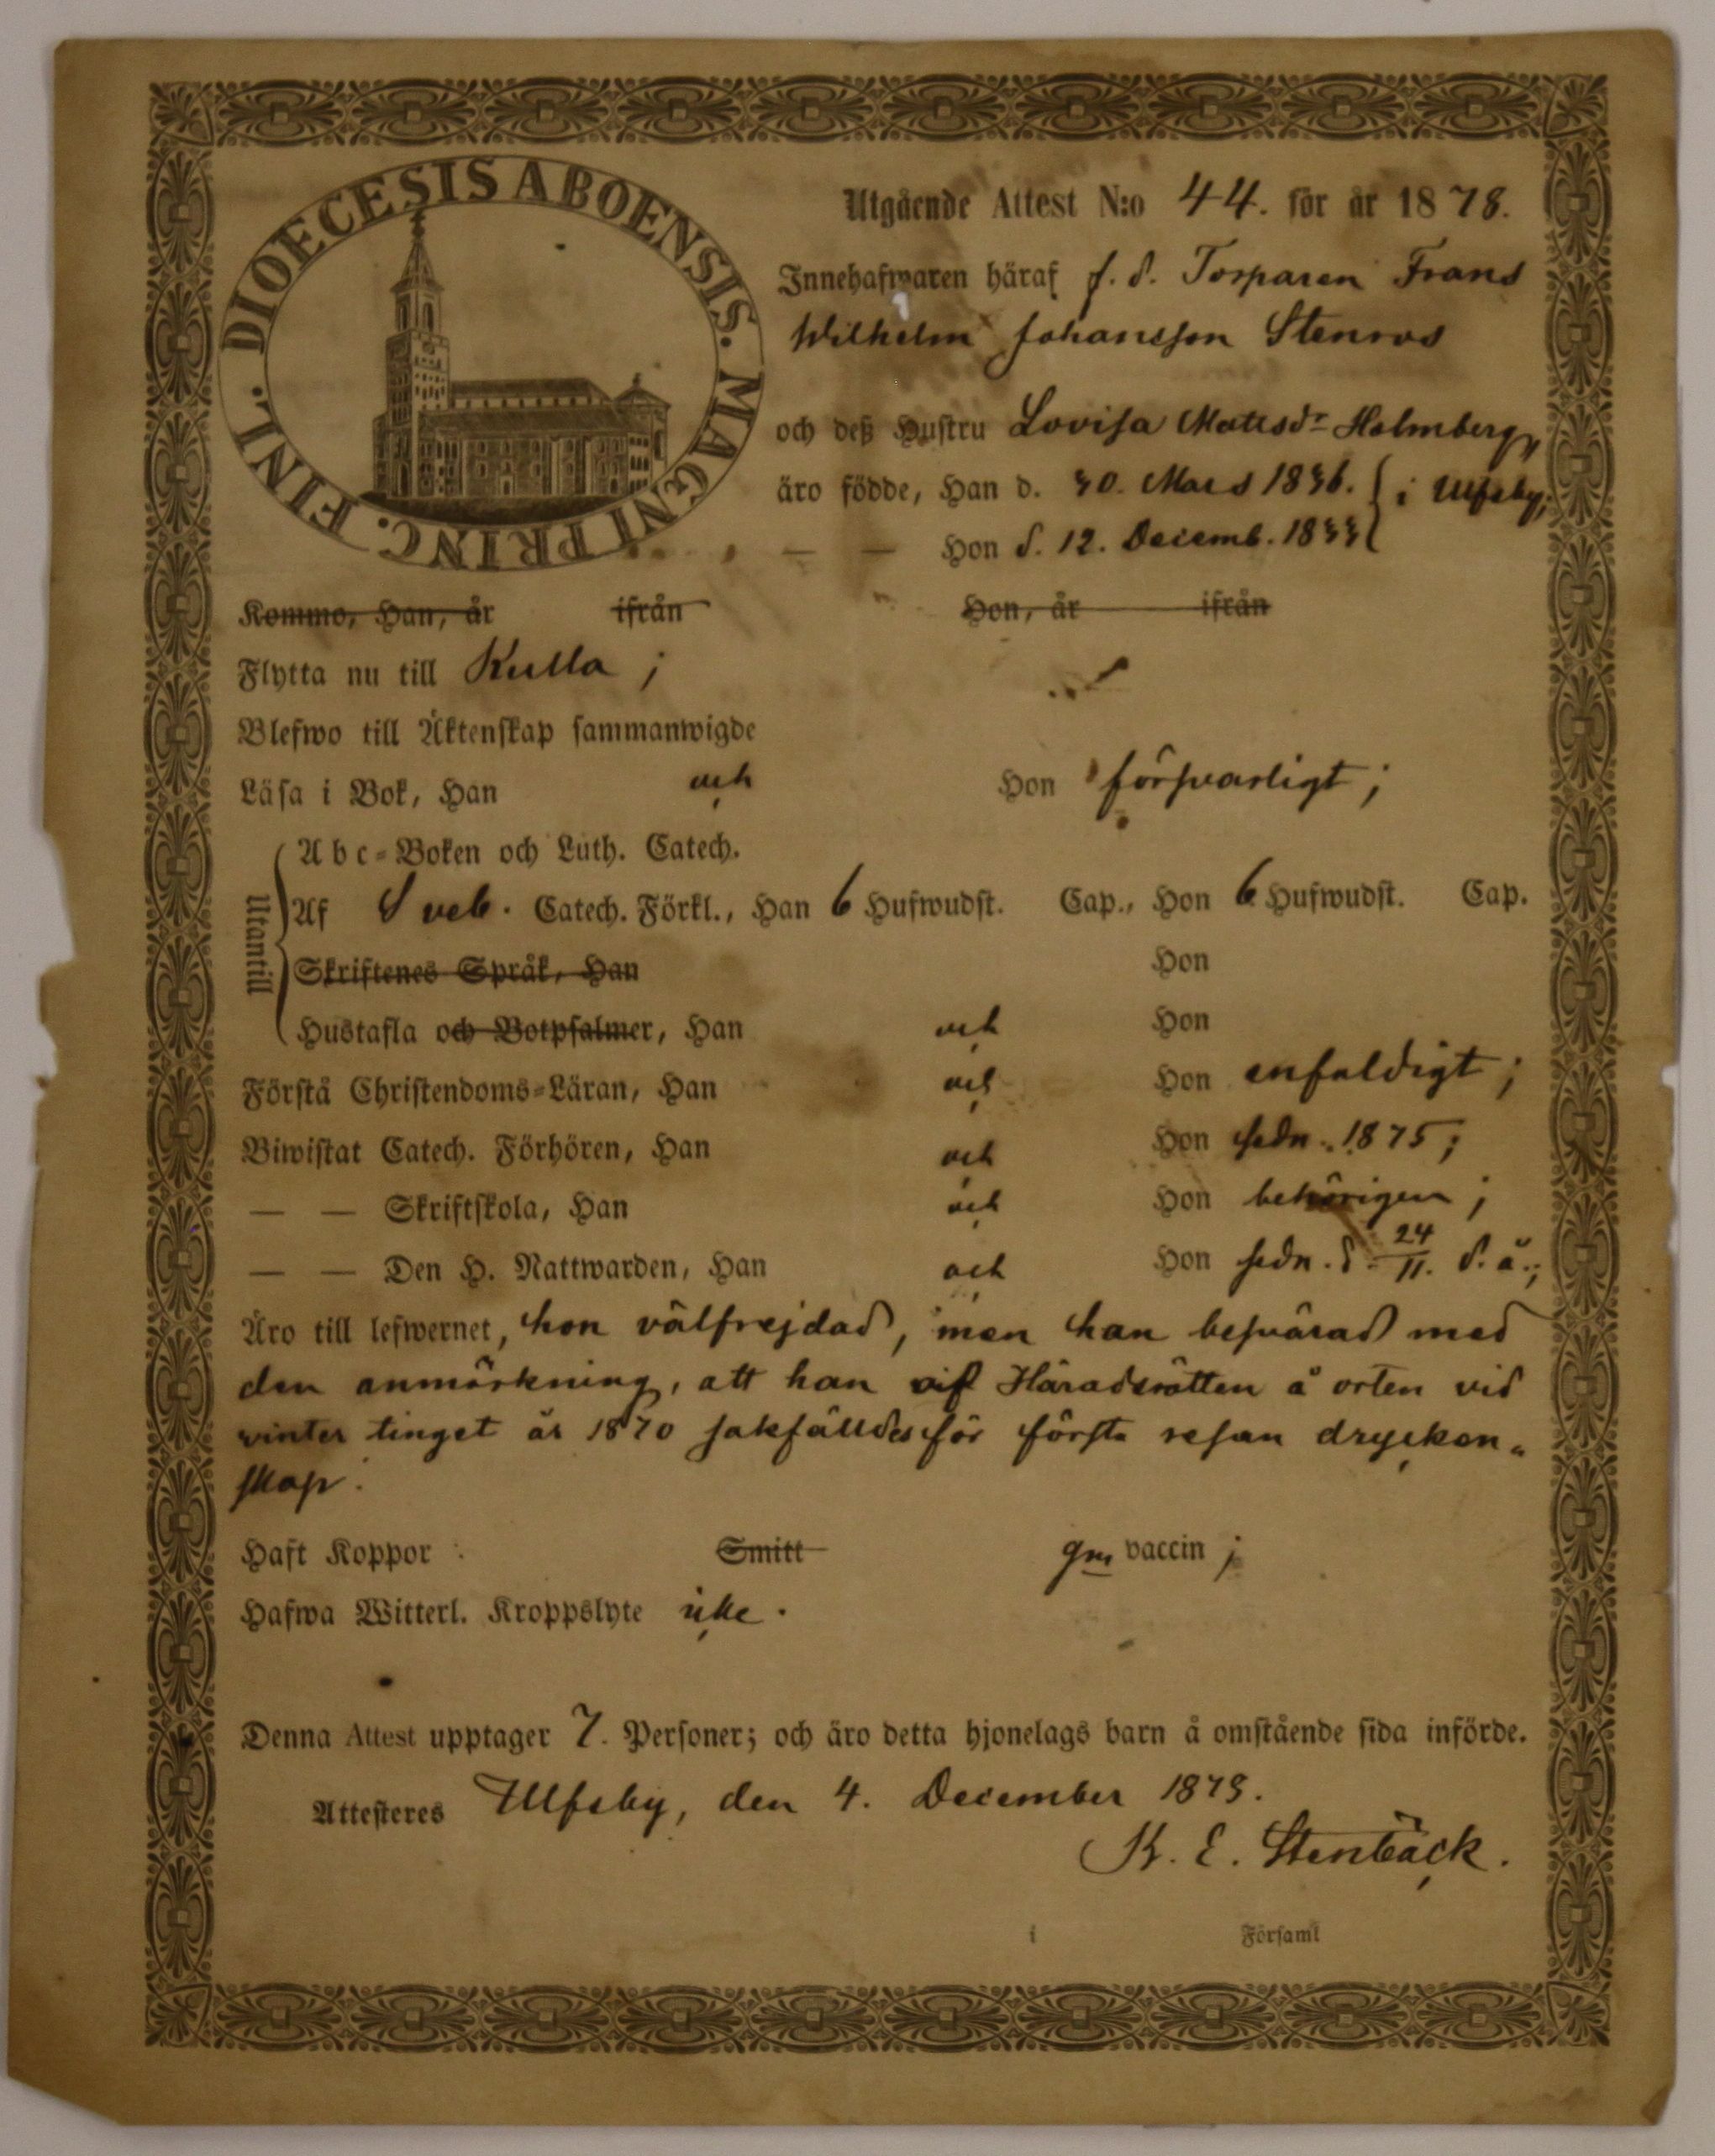 DIOECESIS ABOENSIS. MAGNI PRINC. FINL.
Utgående Attest N:o 44. för år 1878.
Innehafwaren häraf f. d. Torparen Frans
Wilhelm Johansson Stenros
och deß Hustru Lovisa Mattsdr Holmberg,
äro födde, Han d. 30. Mars 1836. } i Ulfsby;
— — Hon d. 12. Decemb. 1833 }
Kommo, Han, år ifrån Hon, år ifrån
Flytta nu till Kulla ;
Blefwo till Äktenskap sammanwigde
Läsa i Bok, Han och Hon försvarligt ;
Utantill
Abc-Boken och Luth. Catech.
Af Sveb. Catech. Förkl., Han 6 Hufwudst. Cap., Hon 6 Hufwudst. Cap.
Skriftenes Språk, Han Hon
Hustafla och Botpsalmer, Han och Hon
Förstå Christendoms-Läran, Han och Hon enfaldigt ;
Biwistat Catech. Förhören, Han och Hon sedn. 1875 ;
— — Skriftskola, Han och Hon behörigen ;
— — Den H. Nattwarden, Han och Hon sedn. d. 24/11. d. å.;
Äro till lefwernet, hon välfrejdad, men han besvärad med
den anmärkning, att han af Häradsrätten å orten vid
vinter tinget år 1870 sakfälldes för första resan drycken-
skap.
Haft Koppor Smitt gm vaccin ;
Hafwa Witterl. Kroppslyte icke.
Denna Attest upptager 7. Personer; och äro detta hjonelags barn å omstående sida införde.
Attesteres Ulfsby, den 4. December 1878.
K. E. Stenbäck.
i Församl